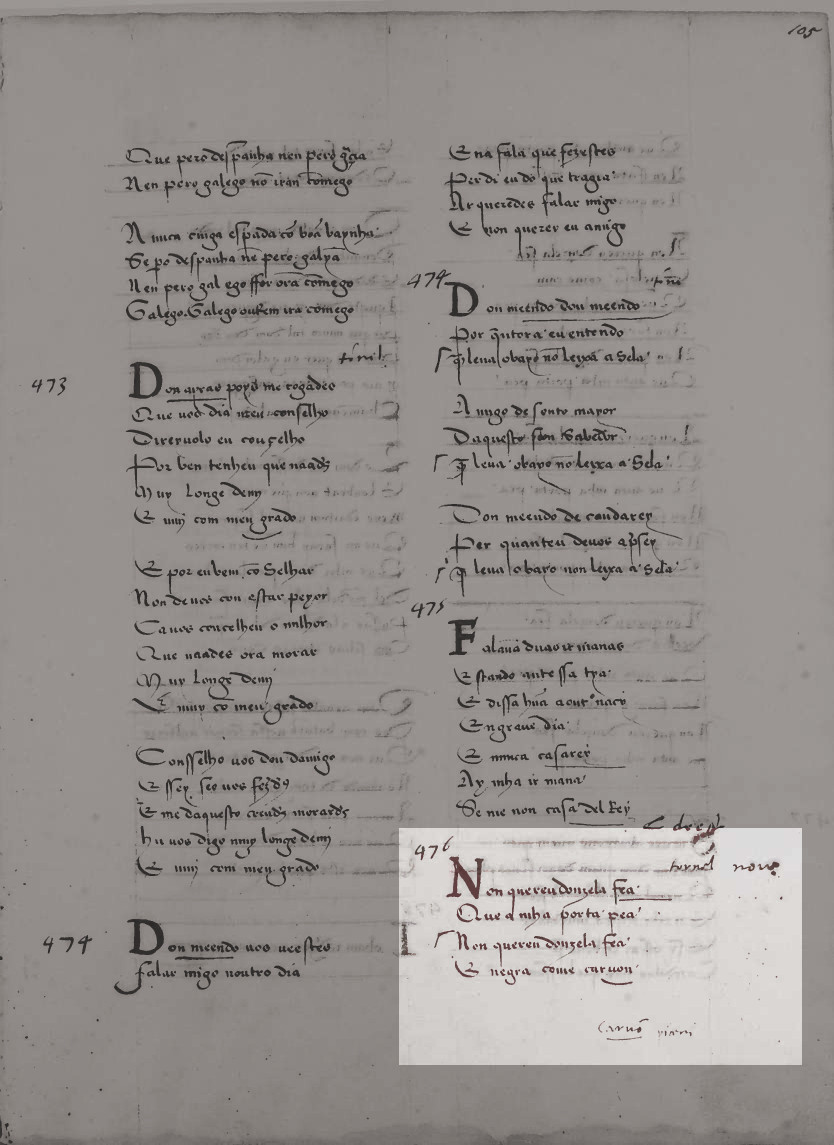 105
Que pero despanha nen pero g̃cia
Nen pero galego nõ iran comego
A nuca ciũga espada cõ boa baynha
Se po despanha nẽ pero galyã
Nen pero gal ego ffor ora comego
Galego. Galego outrem ira comego
tornel
473
Don ayras poys me rogades
Que uos dia meu conselho
Direyuolo eu conçelho
Por ben tenheu que uaads
Muy longe demj
E muj com meu grado
E por eu bem cõ Selhar
Non deuos con estar peyor
Ca uos concelheu o milhor
Que uaades ora morar
Muy longe demj
E muy cõ meu grado
Consselho uos dou damigo
E ssey se o uos fezds
E me daquesto creuds morards
hu uos digo muy longe demj
E muj com meu grado
474
Don meendo uos ueestes
falar migo noutro dia
E na fala que fezestes
Perdi eu do que tragia
Ar queredes falar migo
E non querer eu amigo
474
tornel
Don meendo dou meendo
Por quãtora eu entendo
q̃ leua obayo nõ leyxa a Sela
Amigo de Souto mayor
Daquesto son Sabedor
q̃ leua obayo nõ leyxa a Sela
Don meendo de candarey
Per quanteu deuos apsey
q̃ leua obayo non leyxa a Sela
475
Falauã duas irmanas
Estando ante ssa tya
E dissa hũa a out
Engraue dia
E nunca casarey
Ay mha irmana
Se me non casa del Rey
476
tornel nove
Non quereu donzela fea
Que a mha porta pea
Non quereu donzela fea
E negra come caruon
Caruõ